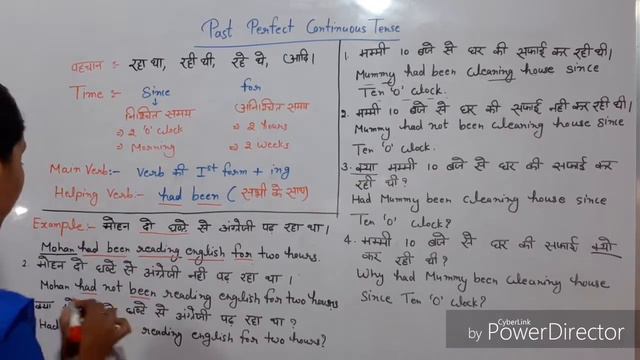 Past Perfect Continuous Tense
पहचान :- रहा था, रही थी, रहे थे, (आदि।
Time :- Since for
निश्चित समय अनिश्चित समय
⇒ 2 'O' Clock ⇒ 2 Years
⇒ Morning ⇒ 2 Weeks
Main Verb:- Verb की Ist form + ing
Helping Verb:- had been (सभी के साथ)
Example:- मोहन दो घण्टे से अंग्रेजी पढ़ रहा था।
Mohan had been reading english for two hours.
2. मोहन दो घण्टे से अंग्रेजी नहीं पढ़ रहा था।
Mohan had not been reading english for two hours
क्या घण्टे से अंग्रेजी पढ़ रहा था?
Had reading english for two hours?
1. मम्मी 10 बजे से घर की सफाई कर रही थी।
Mummy had been cleaning house since
Ten 'O' clock.
2. मम्मी 10 बजे से घर की सफाई नहीं कर रही थी।
Mummy had not been cleaning house since
Ten 'O' clock.
3. क्या मम्मी 10 बजे से घर की सफाई कर
रही थी?
Had Mummy been cleaning house since
Ten 'O' clock?
4. मम्मी 10 बजे से घर की सफाई क्यों
कर रही थी?
Why had Mummy been cleaning house
since Ten 'O' clock?
CyberLink
by PowerDirector